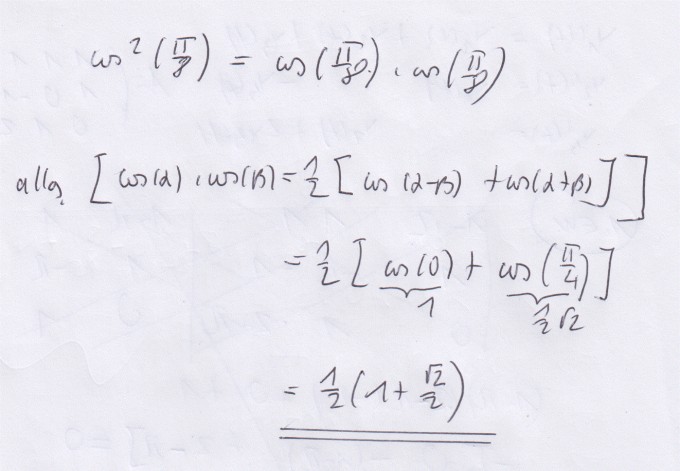 cos²(π/8) = cos(π/8) · cos(π/8)
allg. [cos(α) · cos(β) = 1/2 [cos(α-β) + cos(α+β)]]
= 1/2 [cos(0) + cos(π/4)]
1 1/2 √2
= 1/2 (1 + √2/2)